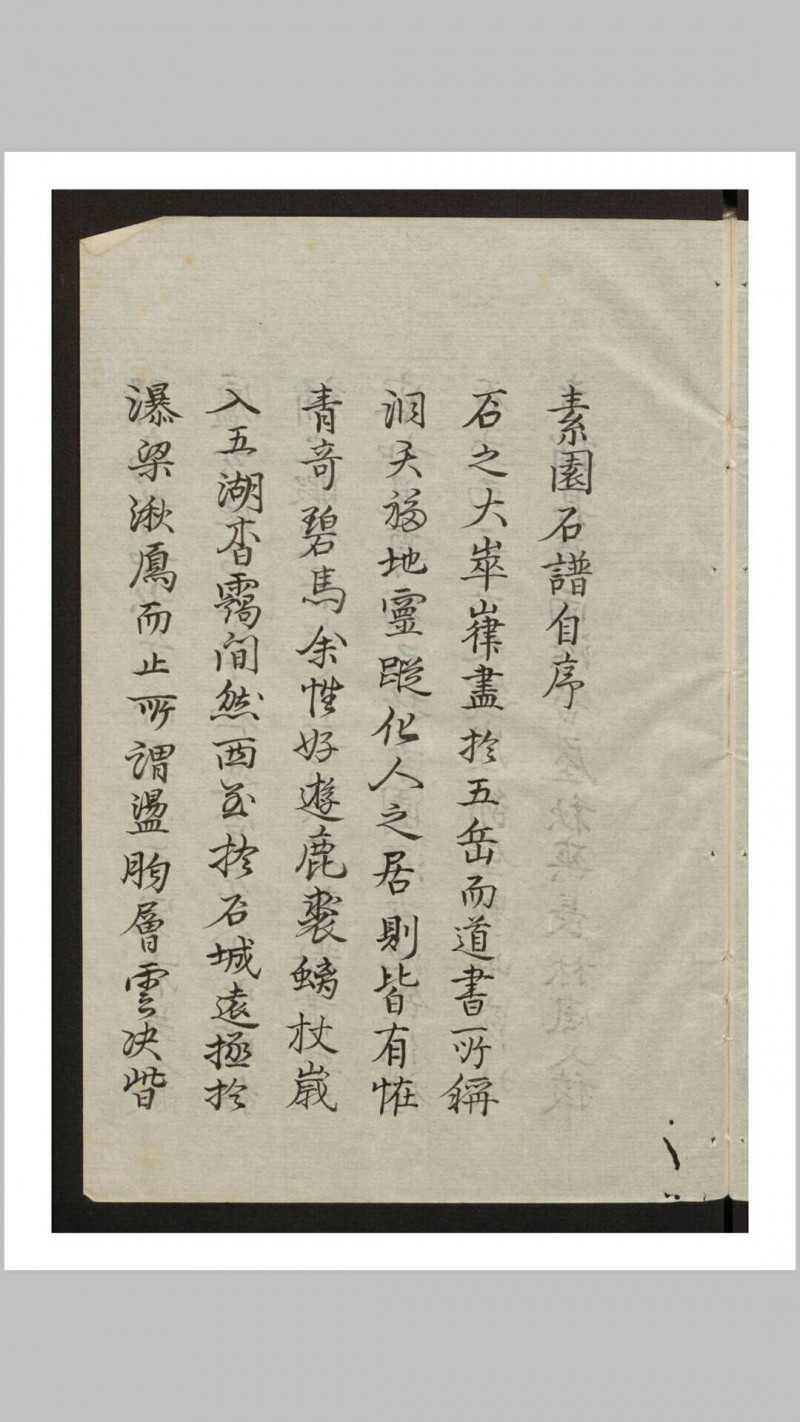 素園石譜自序
石之大崒嵂盡於五岳而道書所稱
洞天福地靈蹤化人之居則皆有恠
青奇碧焉余性好遊鹿裘螭杖嵗
入五湖杳靄間然西至於石城遠極於
瀑梁湫鳫而止所謂盪胸層雲决眥